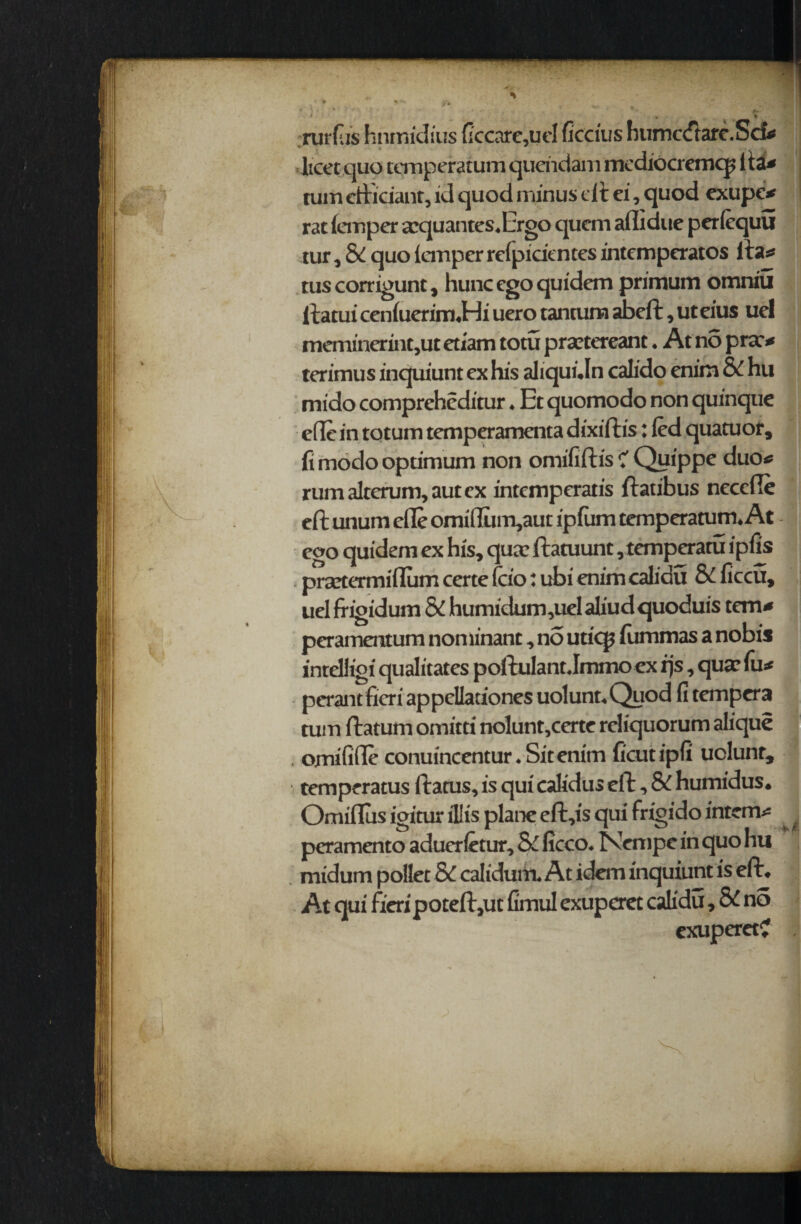 rurſus humidius ſiccare,uel ſiccius humectare.Sci⸗
licet quo temperatum quendam mediocremq́ʒ ſta⸗
tum efficiant, id quod minus eſt ei, quod exupe⸗
rat ſemper æquantes.Ergo quem aſſidue perſequū
tur, & quo ſemper reſpicientes intemperatos ſta⸗
tus corrigunt, hunc ego quidem primum omniū
ſtatui cenſuerim.Hi uero tantum abeſt, ut eius uel
meminerint,ut etiam totū prætereant. At nō præ⸗
terimus inquiunt ex his aliqui.In calido enim & hu
mido comprehēditur. Et quomodo non quinque
eſſe in totum temperamenta dixiſtis: ſed quatuor,
ſi modo optimum non omiſiſtis? Quippe duo⸗
rum alterum, aut ex intemperatis ſtatibus neceſſe
eſt unum eſſe omiſſum,aut ipſum temperatum.At
ego quidem ex his, quæ ſtatuunt, temperatū ipſis
prætermiſſum certe ſcio: ubi enim calidū & ſiccū,
uel frigidum & humidum,uel aliud quoduis tem⸗
peramentum nominant, nō utiq́ʒ ſummas a nobis
intelligi qualitates poſtulant.Immo ex ijs, quæ ſu⸗
perant fieri appellationes uolunt.Quod ſi tempera
tum ſtatum omitti nolunt,certe reliquorum aliquē
omiſiſſe conuincentur. Sit enim ſicut ipſi uolunt,
temperatus ſtatus, is qui calidus eſt, & humidus.
Omiſſus igitur illis plane eſt,is qui frigido intem⸗
peramento aduerſetur, & ſicco. Nempe in quo hu
midum pollet & calidum. At idem inquiunt is eſt.
At qui fieri poteſt,ut ſimul exuperet calidū, & nō
exuperet?